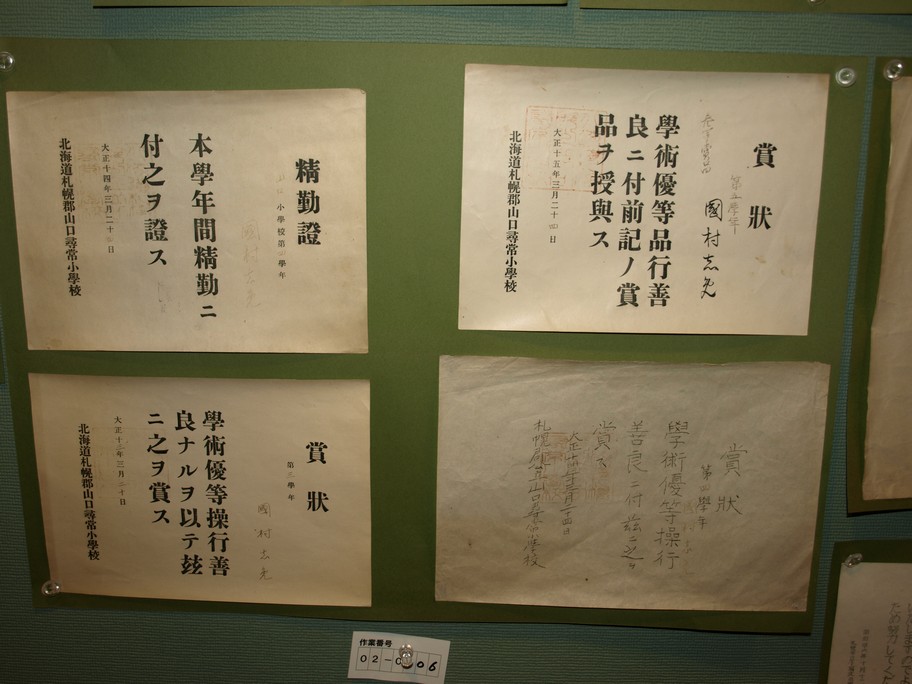 賞狀
第五學年
國村志免
學術優等品行善
良ニ付前記ノ賞
品ヲ授與ス
大正十五年三月二十四日
北海道札幌郡山口尋常小學校
精勤證
小學校第 學年
本學年間精勤ニ
付之ヲ證ス
大正十四年三月二十 日
北海道札幌郡山口尋常小學校
賞狀
第四學年
學術優等操行
善良ニ付茲ニ之ヲ
賞ス
三月二十四日
山口尋常小學校
賞狀
第三學年
國村志免
學術優等操行善
良ナルヲ以テ玆
ニ之ヲ賞ス
大正十 年三月二十日
北海道札幌郡山口尋常小學校
作業番号